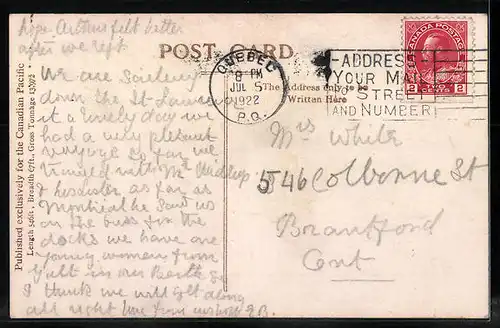 hope Arthur felt better
after we left
POST CARD
QUEBEC
8 PM
JUL 5
1922
P.Q.
ADDRESS
YOUR MAIL
TO STREET
AND NUMBER
CANADA POSTAGE
2 CENTS 2
The Address only to be
Written Here
Published exclusively for the Canadian Pacific
Length 546ft., Breadth 67ft., Gross Tonnage
We are Sailing
down the St Lawrence
it a lovely day we
had a very plesent
voyage so far we
traviled with Mr
& his sister as far as
Montreal he saw us
on the buss for the
docks we have one
young women from
Galt in our Berth so
I think we will get along
all right love from
Mrs White
546 Colborne St
Brantford
Ont